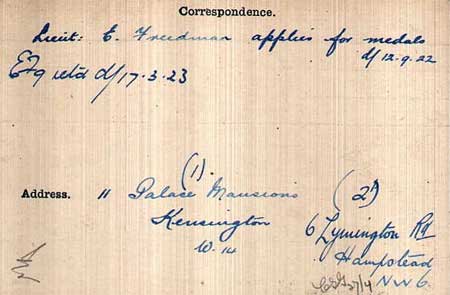 Correspondence.
Lieut: E. Freedman applies for medals
d/ 12.9.22
EF9 retd d/17.3.23
Address.
(1).
11 Palace Mansions
Kensington
W. 14
(2)
6 Lymington Rd
Hampstead
NW6.